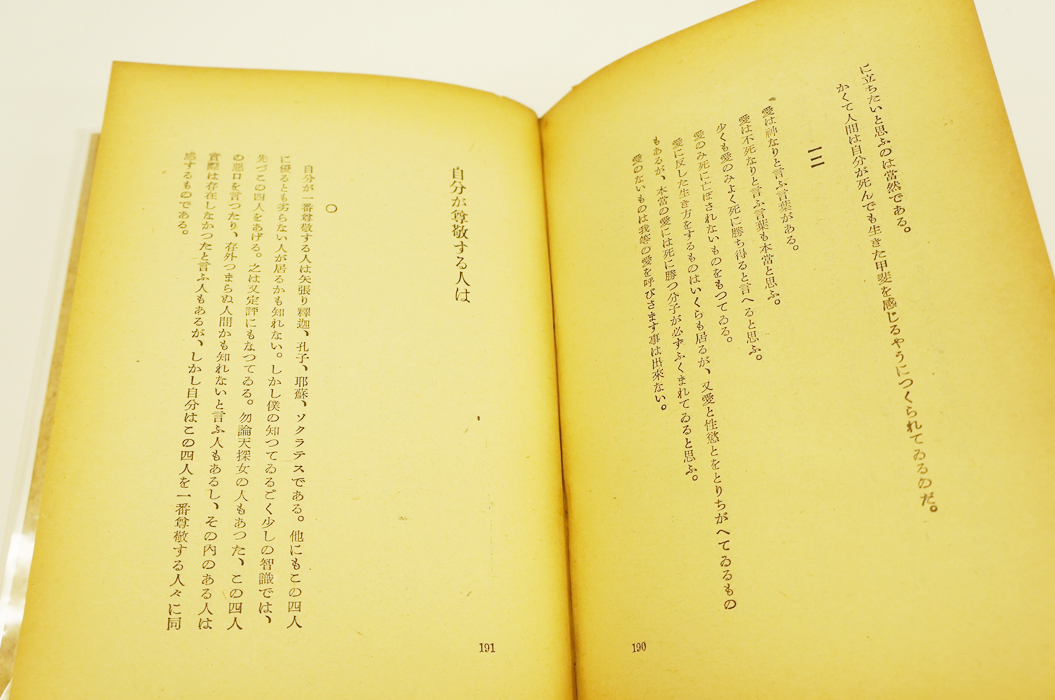 に立ちたいと思ふのは當然である。
かくて人間は自分が死んでも生きた甲斐を感じるやうにつくられてゐるのだ。
一二
愛は神なりと言ふ言葉がある。
愛は不死なりと言ふ言葉も本當と思ふ。
少くも愛のみよく死に勝ち得ると言へると思ふ。
愛のみ死に亡ぼされないものをもつてゐる。
愛に反した生き方をするものはいくらも居るが、又愛と性慾とをとりちがへてゐるもの
もあるが、本當の愛には死に勝つ分子が必ずふくまれてゐると思ふ。
愛のないものは我等の愛を呼びさます事は出來ない。
190
自分が尊敬する人は
○
自分が一番尊敬する人は矢張り釋迦、孔子、耶蘇、ソクラテスである。他にもこの四人
に優るとも劣らない人が居るかも知れない。しかし僕の知つてゐるごく少しの智識では、
先づこの四人をあげる。之は又定評にもなつてゐる。勿論天探女の人もあつた、この四人
の惡口を言つたり、存外つまらぬ人間かも知れないと言ふ人もあるし、その內のある人は
實際は存在しなかつたと言ふ人もあるが、しかし自分はこの四人を一番尊敬する人々に同
感するものである。
191